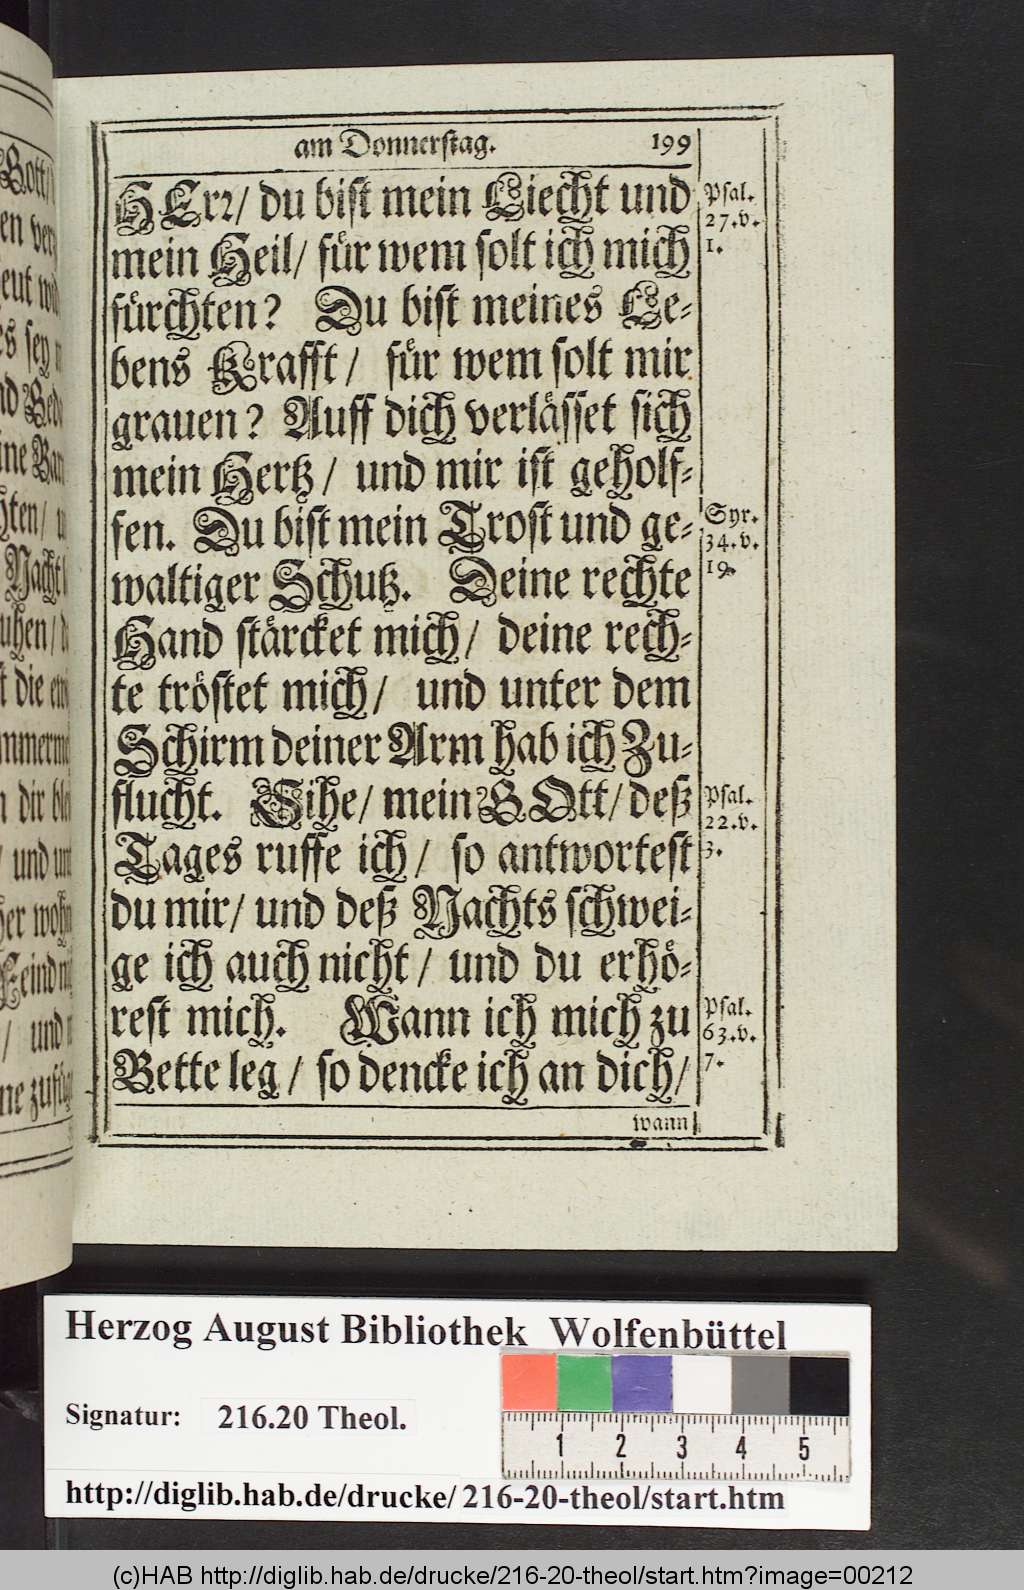 am Donnerstag. 199
HErr/ du bist mein Liecht und
mein Heil/ für wem solt ich mich
fürchten? Du bist meines Le-
bens Krafft/ für wem solt mir
grauen? Auff dich verlässet sich
mein Hertz/ und mir ist geholf-
fen. Du bist mein Trost und ge-
waltiger Schutz. Deine rechte
Hand stärcket mich/ deine rech-
te tröstet mich/ und unter dem
Schirm deiner Arm hab ich Zu-
flucht. Sihe/ mein GOtt/ deß
Tages ruffe ich/ so antwortest
du mir/ und deß Nachts schwei-
ge ich auch nicht/ und du erhö-
rest mich. Wann ich mich zu
Bette leg/ so dencke ich an dich/
wann
Psal.
27.v.
1.
Syr.
34.v.
19.
Psal.
22.v.
3.
Psal.
63.v.
7.
Herzog August Bibliothek Wolfenbüttel
Signatur: 216.20 Theol.
1 2 3 4 5
http://diglib.hab.de/drucke/216-20-theol/start.htm
(c)HAB http://diglib.hab.de/drucke/216-20-theol/start.htm?image=00212